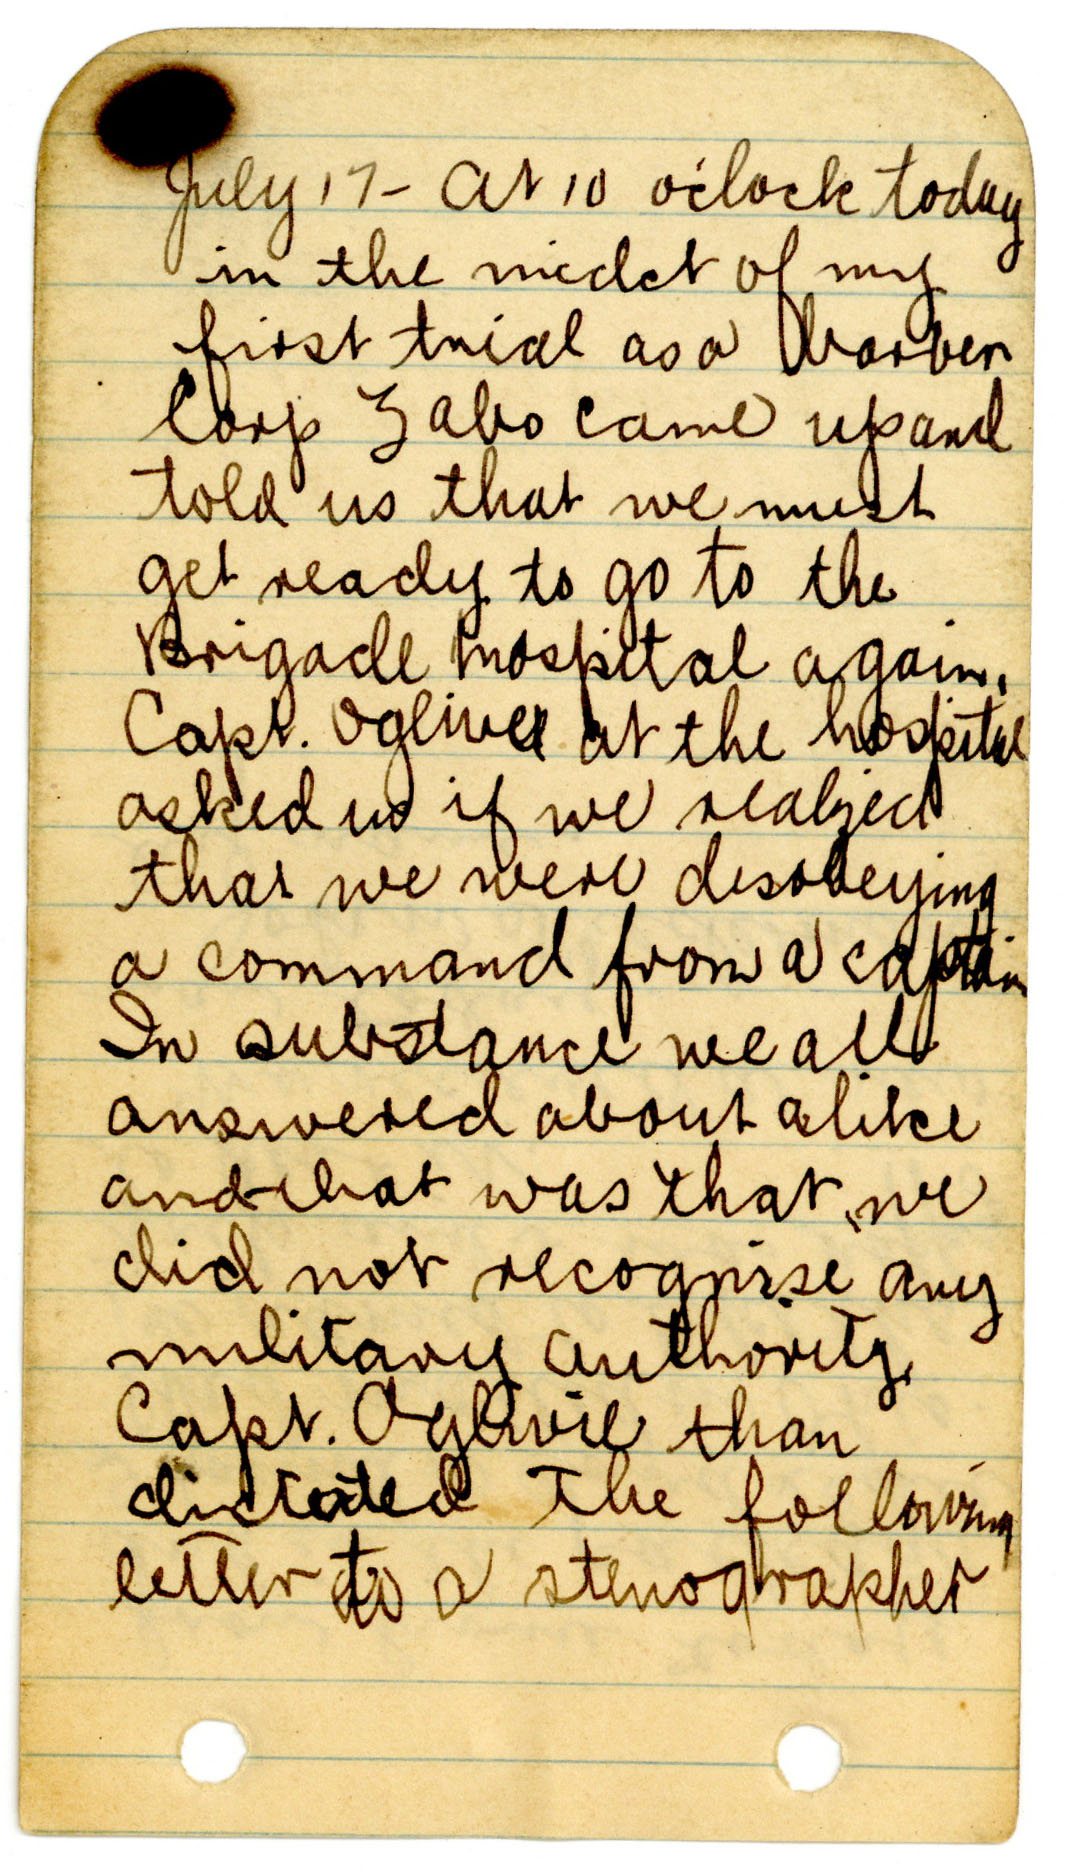 July 17 - At 10 o'clock today
in the midct of my
first trial as a barber
Corp Zabo came up and
told us that we must
get ready to go to the
Brigade hospital again.
Capt. Oglivee at the hospital
asked us if we realized
that we were desobeying
a command from a captain
In substance we all
answered about alike
and that was that we
did not recognise any
military authority.
Capt. Oglivie than
dictated the following
letter to a stenographer